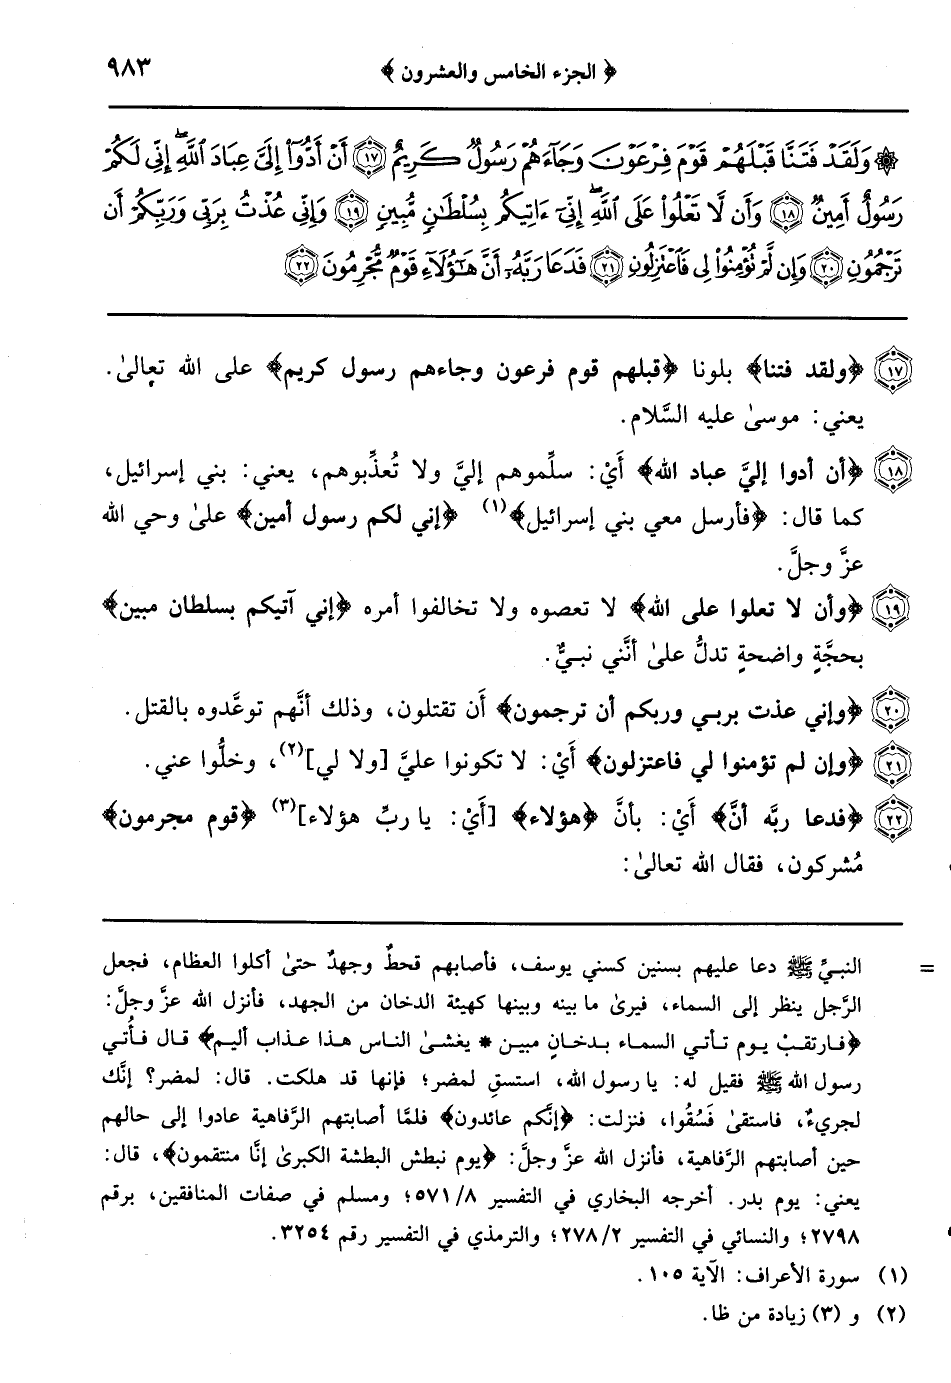 ﴿ الجزء الخامس والعشرون ﴾ ٩٨٣
۞ وَلَقَدْ فَتَنَّا قَبْلَهُمْ قَوْمَ فِرْعَوْنَ وَجَآءَهُمْ رَسُولٌ كَرِيمٌ ﴿١٧﴾ أَنْ أَدُّوٓا۟ إِلَىَّ عِبَادَ ٱللَّهِ ۖ إِنِّى لَكُمْ
رَسُولٌ أَمِينٌ ﴿١٨﴾ وَأَن لَّا تَعْلُوا۟ عَلَى ٱللَّهِ ۖ إِنِّىٓ ءَاتِيكُم بِسُلْطَـٰنٍ مُّبِينٍ ﴿١٩﴾ وَإِنِّى عُذْتُ بِرَبِّى وَرَبِّكُمْ أَن
تَرْجُمُونِ ﴿٢٠﴾ وَإِن لَّمْ تُؤْمِنُوا۟ لِى فَٱعْتَزِلُونِ ﴿٢١﴾ فَدَعَا رَبَّهُۥٓ أَنَّ هَـٰٓؤُلَآءِ قَوْمٌ مُّجْرِمُونَ ﴿٢٢﴾
١٧ ﴿ولقد فتنا﴾ بلونا ﴿قبلهم قوم فرعون وجاءهم رسول كريم﴾ على الله تعالىٰ.
يعني: موسىٰ عليه السَّلام.
١٨ ﴿أن أدوا إليَّ عباد الله﴾ أَيْ: سلِّموهم إليَّ ولا تُعذِّبوهم، يعني: بني إسرائيل،
كما قال: ﴿فأرسل معي بني إسرائيل﴾(١) ﴿إني لكم رسول أمين﴾ علىٰ وحي الله
عزَّ وجلَّ.
١٩ ﴿وأن لا تعلوا على الله﴾ لا تعصوه ولا تخالفوا أمره ﴿إني آتيكم بسلطان مبين﴾
بحجَّةٍ واضحةٍ تدلُّ علىٰ أنَّني نبيٌّ.
٢٠ ﴿وإني عذت بربي وربكم أن ترجمون﴾ أَن تقتلون، وذلك أنَّهم توعَّدوه بالقتل.
٢١ ﴿وإن لم تؤمنوا لي فاعتزلون﴾ أَيْ: لا تكونوا عليَّ [ولا لي](٢)، وخلُّوا عني.
٢٢ ﴿فدعا ربَّه أنَّ﴾ أَيْ: بأنَّ ﴿هؤلاء﴾ [أَيْ: يا ربِّ هؤلاء](٣) ﴿قوم مجرمون﴾
مُشركون، فقال الله تعالىٰ:
= النبيَّ ﷺ دعا عليهم بسنين كسني يوسف، فأصابهم قحطٌ وجهدٌ حتىٰ أكلوا العظام، فجعل
الرَّجل ينظر إلى السماء، فيرىٰ ما بينه وبينها كهيئة الدخان من الجهد، فأنزل الله عزَّ وجلَّ:
﴿فارتقبْ يوم تأتي السماء بدخانٍ مبين * يغشىٰ الناس هذا عذاب أليم﴾ قال فأُتي
رسول الله ﷺ فقيل له: يا رسول الله، استسقِ لمضر؛ فإنها قد هلكت. قال: لمضر؟ إنَّك
لجريءٌ، فاستقىٰ فَسُقُوا، فنزلت: ﴿إنَّكم عائدون﴾ فلمَّا أصابتهم الرَّفاهية عادوا إلى حالهم
حين أصابتهم الرَّفاهية، فأنزل الله عزَّ وجلَّ: ﴿يوم نبطش البطشة الكبرىٰ إنَّا منتقمون﴾، قال:
يعني: يوم بدر. أخرجه البخاري في التفسير ٥٧١/٨؛ ومسلم في صفات المنافقين، برقم
٢٧٩٨؛ والنسائي في التفسير ٢٧٨/٢؛ والترمذي في التفسير رقم ٣٢٥٤.
(١) سورة الأعراف: الآية ١٠٥.
(٢) و (٣) زيادة من ظا.